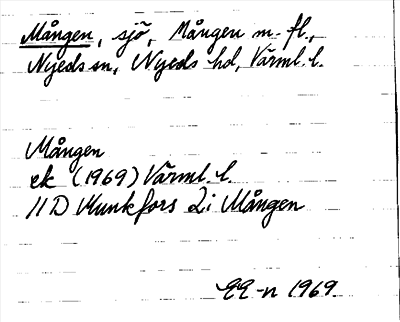 Mången, sjö, Mången m. fl.,
Nyeds sn, Nyeds hd, Värml. l.
Mången
ek (1969) Värml. l.
11 D Munkfors 2i Mången
EE-n 1969.